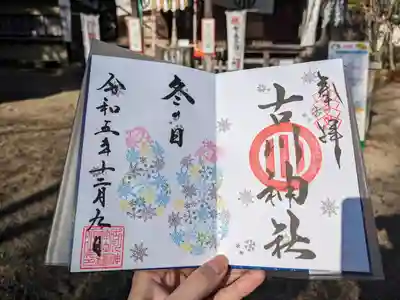 奉拝
古川神社
冬の日
令和五年十二月九日